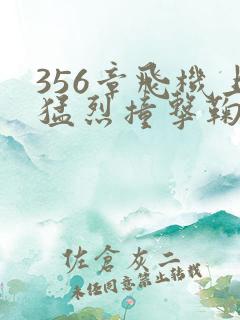 356章飛機上
猛烈撞擊鞠
佐倉灰二
未经同意禁止转载